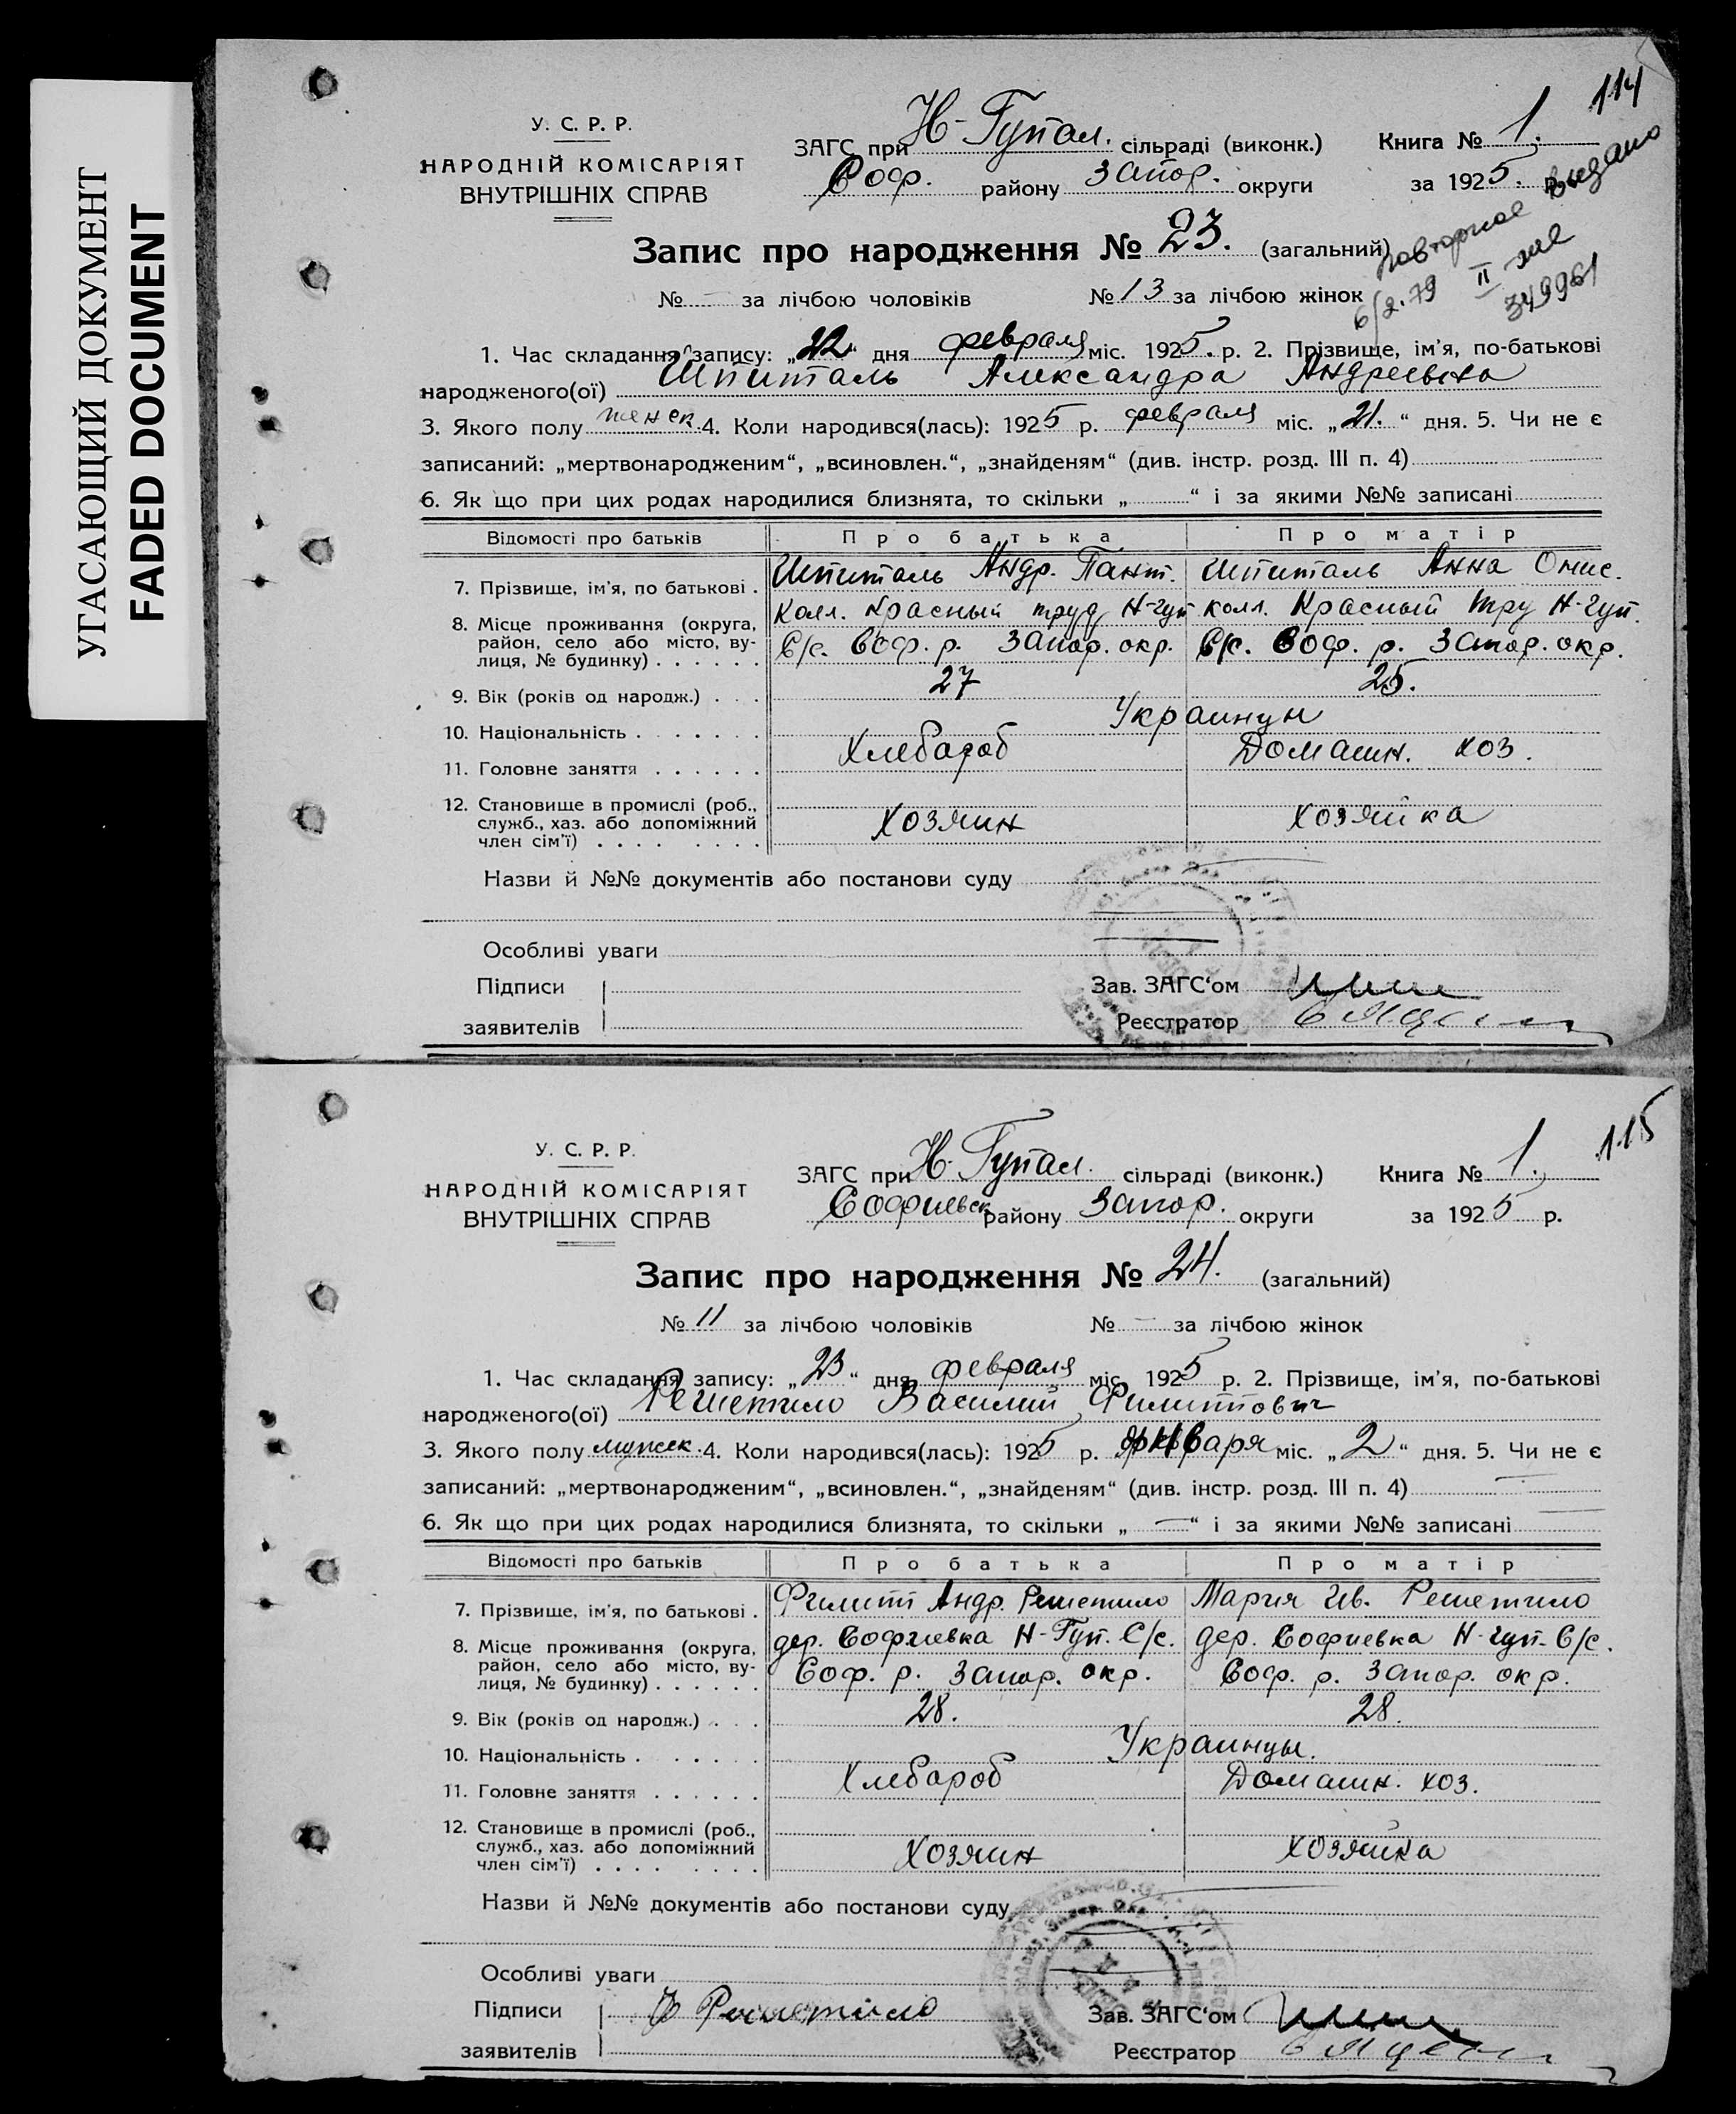 УГАСАЮЩИЙ ДОКУМЕНТ
FADED DOCUMENT
114
У. С. Р. Р.
НАРОДНІЙ КОМІСАРІЯТ
ВНУТРІШНІХ СПРАВ
ЗАГС при Н-Гупал. сільраді (виконк.) Книга № 1.
Соф. району Запор. округи за 1925. р.
Повторное выдано
6/2.79 II
349961
Запис про народження № 23. (загальний)
№ - за лічбою чоловіків № 13 за лічбою жінок
1. Час складання запису: „22“ дня февраля міс. 1925. р. 2. Прізвище, ім’я, по-батькові
народженого(ої) Шпиталь Александра Андреевна
3. Якого полу женск. 4. Коли народився(лась): 1925 р. февраля міс. „21.“ дня. 5. Чи не є
записаний: „мертвонародженим“, „всиновлен.“, „знайденям“ (див. інстр. розд. III п. 4)
6. Як що при цих родах народилися близнята, то скільки „ “ і за якими №№ записані
Відомості про батьків Про батька Про матір
7. Прізвище, ім’я, по батькові . Шпиталь Андр. Пант. Шпиталь Анна Онис.
8. Місце проживання (округа, Колл. Красный труд Н-Гуп колл. Красный тру Н-Гуп.
район, село або місто, ву- С/с. Соф. р. Запор. окр. С/с. Соф. р. Запор. окр.
лиця, № будинку) . . . . . .
9. Вік (років од народж.) . . . 27 25.
10. Національність . . . . . . . Украинцы
11. Головне заняття . . . . . . Хлебароб Домашн. хоз.
12. Становище в промислі (роб.,
служб., хаз. або допоміжний Хозяин Хозяйка
член сім’ї) . . . . . . . .
Назви й №№ документів або постанови суду
Особливі уваги
Підписи Зав. ЗАГС‘ом
заявителів Реєстратор
115
У. С. Р. Р.
НАРОДНІЙ КОМІСАРІЯТ
ВНУТРІШНІХ СПРАВ
ЗАГС при Н-Гупал. сільраді (виконк.) Книга № 1.
Софиевск району Запор. округи за 1925 р.
Запис про народження № 24. (загальний)
№ 11 за лічбою чоловіків № - за лічбою жінок
1. Час складання запису: „23“ дня февраля міс. 1925 р. 2. Прізвище, ім’я, по-батькові
народженого(ої) Решетило Василий Филиппович
3. Якого полу мужск. 4. Коли народився(лась): 1925 р. января міс. „2“ дня. 5. Чи не є
записаний: „мертвонародженим“, „всиновлен.“, „знайденям“ (див. інстр. розд. III п. 4)
6. Як що при цих родах народилися близнята, то скільки „ — “ і за якими №№ записані
Відомості про батьків Про батька Про матір
7. Прізвище, ім’я, по батькові . Филипп Андр. Решетило Мария Ив. Решетило
8. Місце проживання (округа, дер. Софиевка Н-Гуп. С/с. дер. Софиевка Н-Гуп. С/с.
район, село або місто, ву- Соф. р. Запор. окр. Соф. р. Запор. окр.
лиця, № будинку) . . . . . .
9. Вік (років од народж.) . . . 28. 28.
10. Національність . . . . . . . Украинцы.
11. Головне заняття . . . . . . Хлебароб Домашн. хоз.
12. Становище в промислі (роб.,
служб., хаз. або допоміжний Хозяин Хозяйка
член сім’ї) . . . . . . . .
Назви й №№ документів або постанови суду
Особливі уваги
Підписи Ф Решетило Зав. ЗАГС‘ом
заявителів Реєстратор